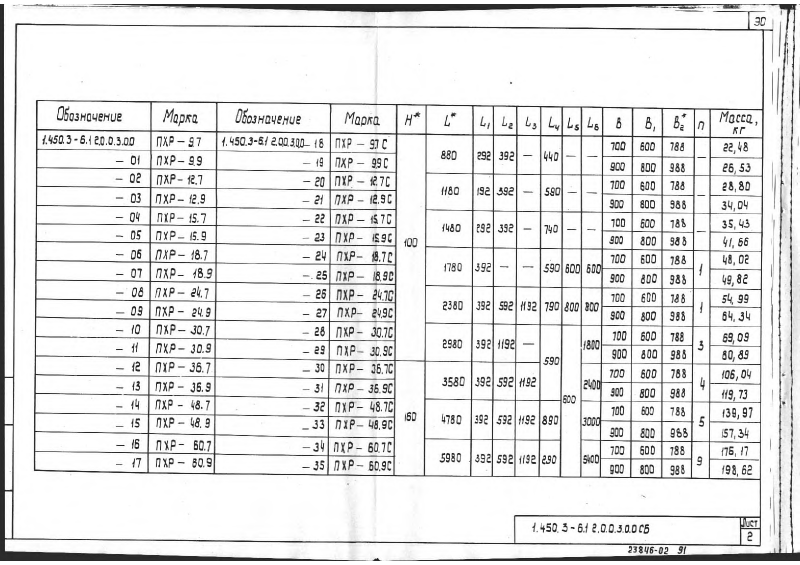 90
Обозначение Марка Обозначение Марка H* L* L₁ L₂ L₃ L₄ L₅ L₆ B B₁ B₂* n Масса, кг
1.450.3-6.1 2.0.0.3.00 ПХР-9.7 1.450.3-6.1 2.0.0.3.00-18 ПХР-9.7С 100 880 292 392 — 440 — — 700 600 788 — 22,48
-01 ПХР-9.9 -19 ПХР-9.9С 900 800 988 26,53
-02 ПХР-12.7 -20 ПХР-12.7С 1180 192 392 — 590 — — 700 600 788 — 28,80
-03 ПХР-12.9 -21 ПХР-12.9С 900 800 988 34,04
-04 ПХР-15.7 -22 ПХР-15.7С 1480 292 392 — 740 — — 700 600 788 — 35,43
-05 ПХР-15.9 -23 ПХР-15.9С 900 800 988 41,66
-06 ПХР-18.7 -24 ПХР-18.7С 1780 392 — — 590 600 600 700 600 788 1 48,02
-07 ПХР-18.9 -25 ПХР-18.9С 900 800 988 49,82
-08 ПХР-24.7 -26 ПХР-24.7С 2380 392 592 1192 790 800 800 700 600 788 1 54,99
-09 ПХР-24.9 -27 ПХР-24.9С 900 800 988 64,34
-10 ПХР-30.7 -28 ПХР-30.7С 2980 392 1192 — 590 600 1800 700 600 788 3 69,09
-11 ПХР-30.9 -29 ПХР-30.9С 900 800 988 80,89
-12 ПХР-36.7 -30 ПХР-36.7С 160 3580 392 592 1192 2400 700 600 788 4 106,04
-13 ПХР-36.9 -31 ПХР-36.9С 900 800 988 119,73
-14 ПХР-48.7 -32 ПХР-48.7С 4780 392 592 1192 890 3000 700 600 788 5 139,97
-15 ПХР-48.9 -33 ПХР-48.9С 900 800 988 157,34
-16 ПХР-60.7 -34 ПХР-60.7С 5980 392 592 1192 290 5400 700 600 788 9 176,17
-17 ПХР-60.9 -35 ПХР-60.9С 900 800 988 198,62
1.450.3-6.1 2.0.0.3.00СБ
Лист
2
23846-02 91